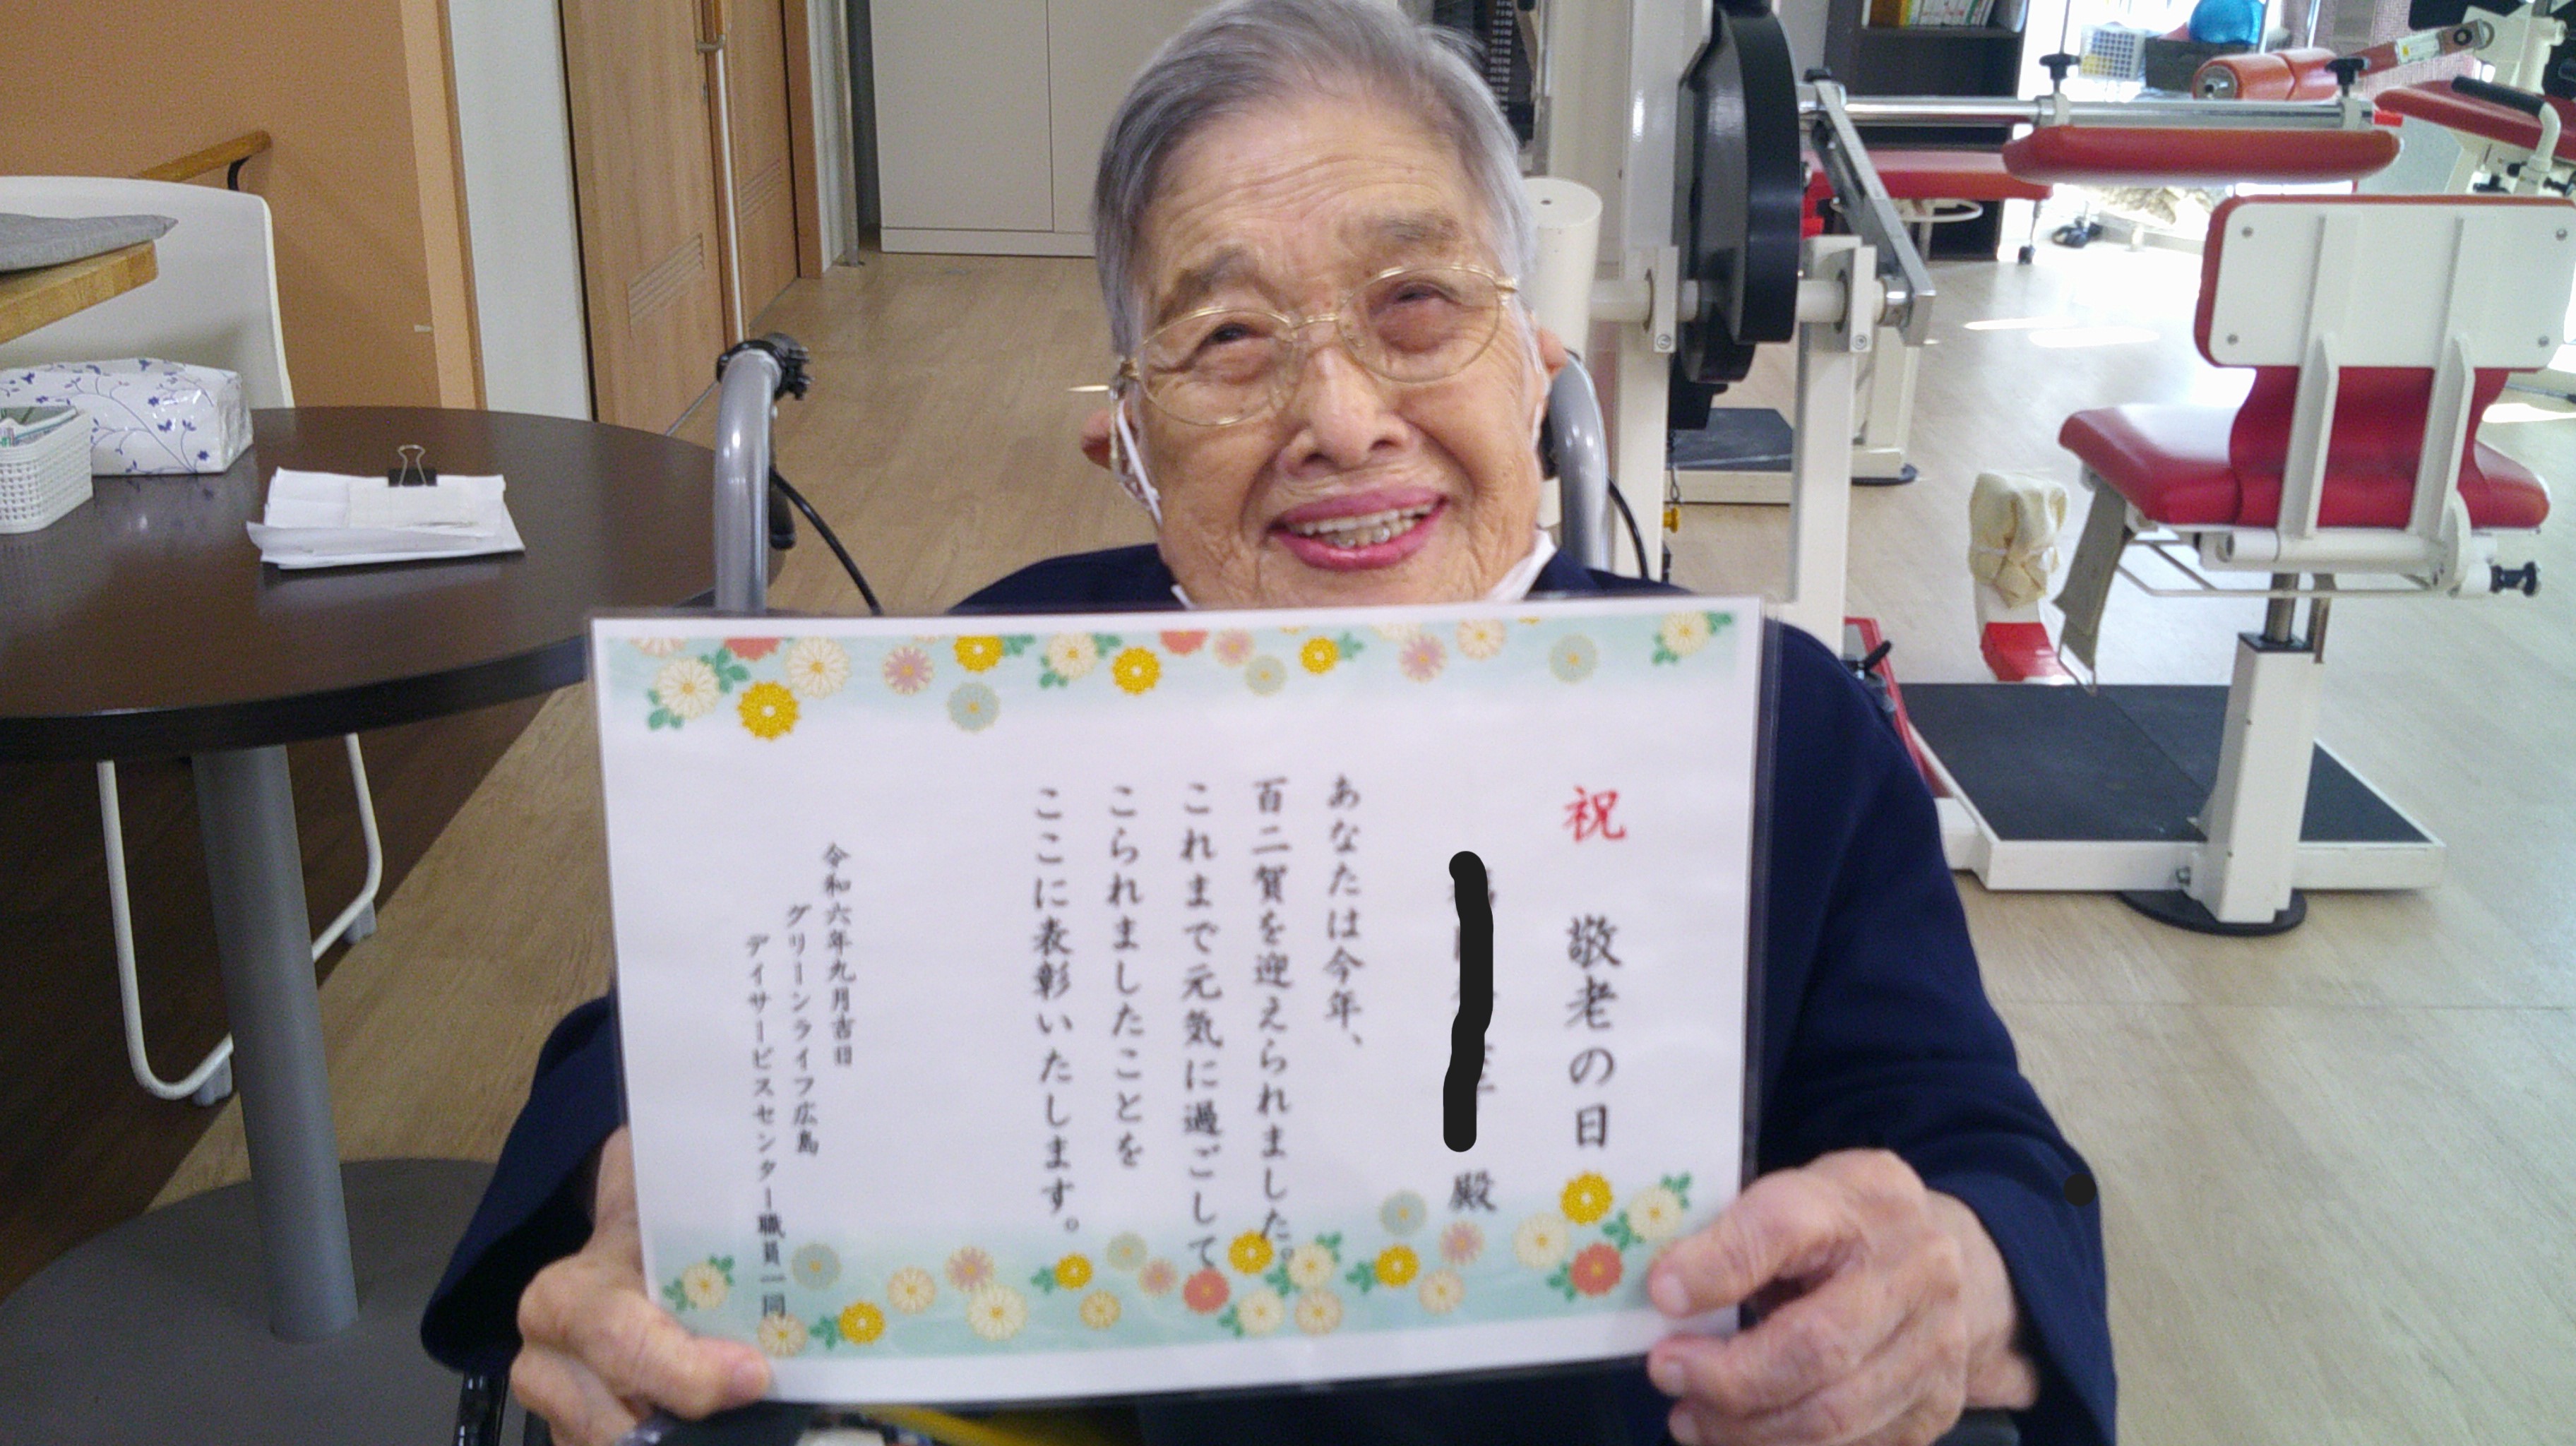 祝 敬老の日
殿
あなたは今年、
百二賀を迎えられました。
これまで元気に過ごして
こられましたことを
ここに表彰いたします。
令和六年九月吉日
グリーンライフ広島
デイサービスセンター職員一同